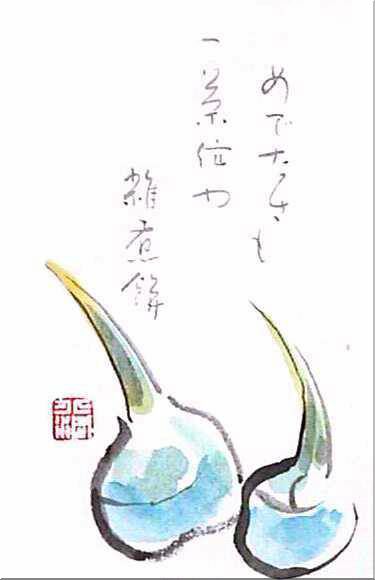 めでたさも
一茶位や
雑煮餅